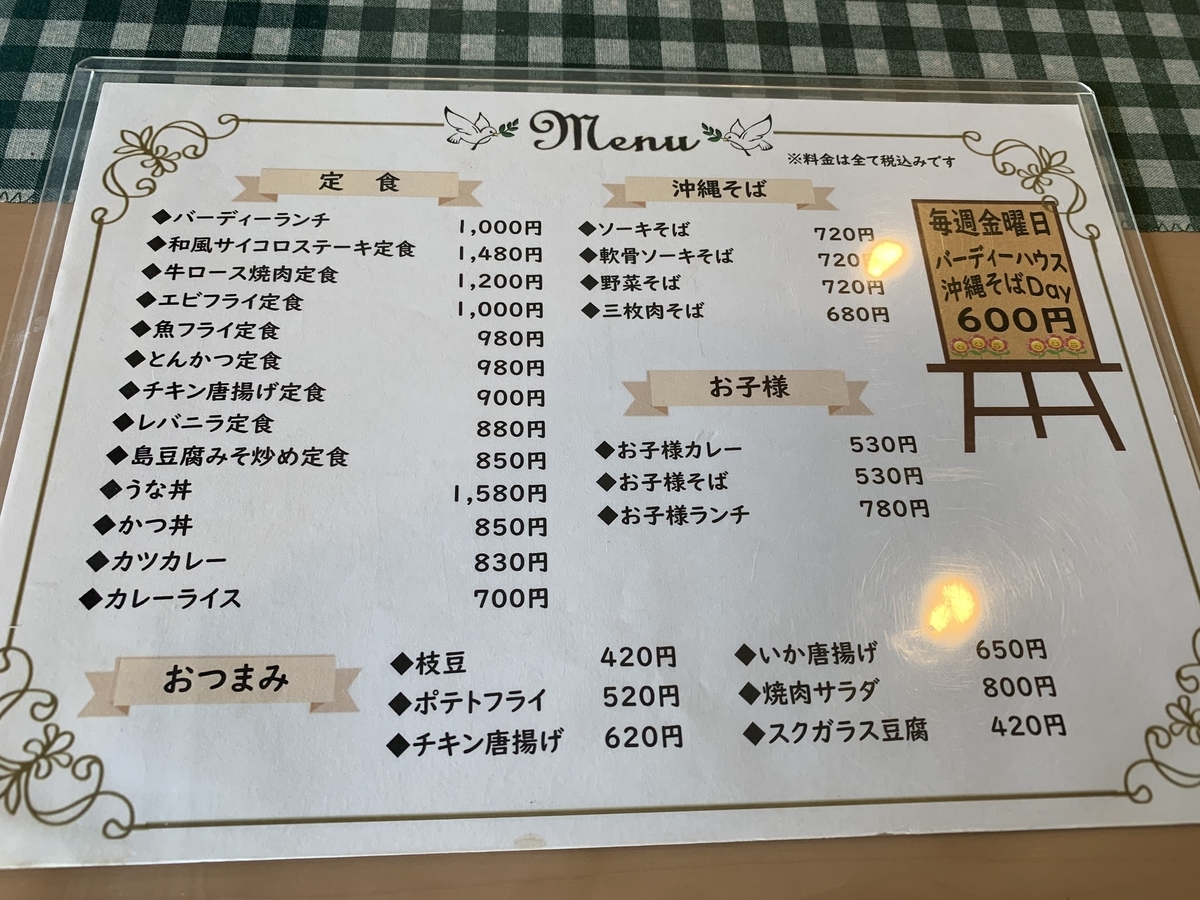 Menu
※料金は全て税込みです
定 食
◆バーディーランチ 1,000円
◆和風サイコロステーキ定食 1,480円
◆牛ロース焼肉定食 1,200円
◆エビフライ定食 1,000円
◆魚フライ定食 980円
◆とんかつ定食 980円
◆チキン唐揚げ定食 900円
◆レバニラ定食 880円
◆島豆腐みそ炒め定食 850円
◆うな丼 1,580円
◆かつ丼 850円
◆カツカレー 830円
◆カレーライス 700円
沖縄そば
◆ソーキそば 720円
◆軟骨ソーキそば 720
◆野菜そば 720円
◆三枚肉そば 680円
毎週金曜日
バーディーハウス
沖縄そばDay
600円
お子様
◆お子様カレー 530円
◆お子様そば 530円
◆お子様ランチ 780円
おつまみ
◆枝豆 420円
◆ポテトフライ 520円
◆チキン唐揚げ 620円
◆いか唐揚げ 650円
◆焼肉サラダ 800円
◆スクガラス豆腐 420円